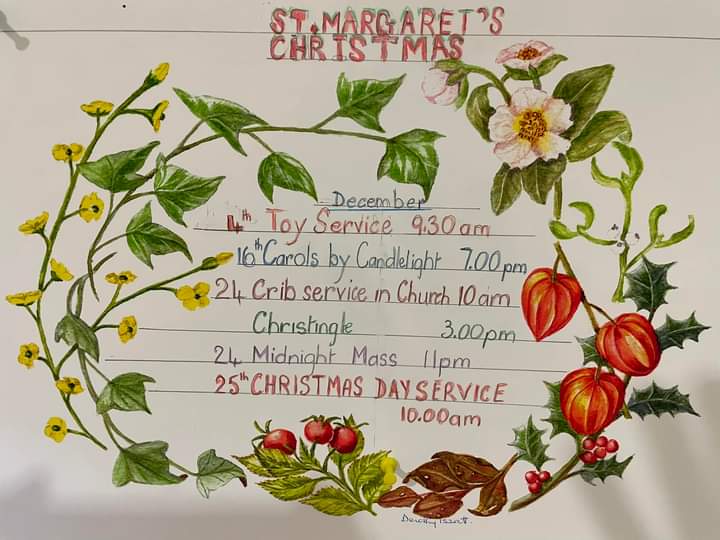 ST. MARGARET'S
CHRISTMAS
December
4th Toy Service 9.30am
16th Carols by Candlelight 7.00pm
24 Crib service in Church 10am
Christingle 3.00pm
24 Midnight Mass 11pm
25th CHRISTMAS DAY SERVICE
10.00am
Dorothy